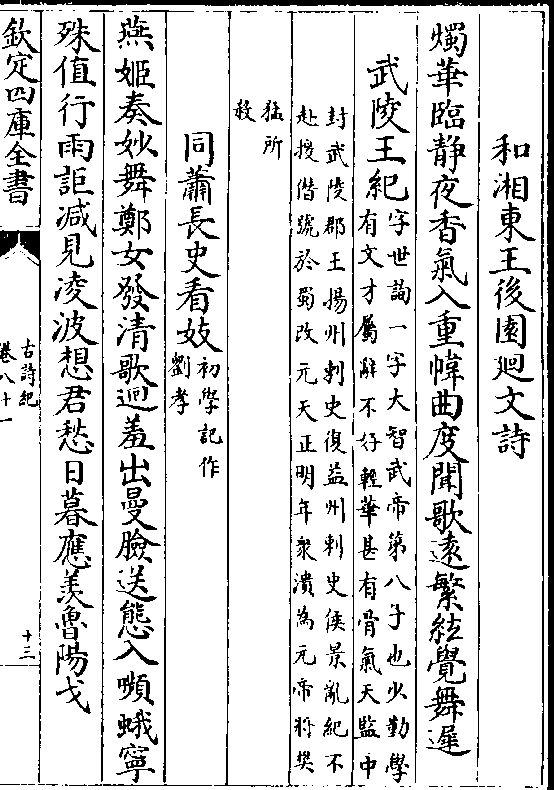 和湘東王後園廻文詩
燭華臨靜夜香氣入重幃曲度聞歌遠繁絃覺舞遲
武陵王紀
字世詢一字大智武帝第八子也少勤學
有文才屬辭不好輕華甚有骨氣天監中
封武陵郡王揚州刺史復益州刺史侯景亂紀不
赴援僭號於蜀改元天正明年衆潰為元帝將樊
猛所
殺
同蕭長史看妓
初學記作
劉孝
燕姬奏妙舞鄭女發清歌廻羞出曼臉送態入嚬蛾寧
殊值行雨詎减見凌波想君愁日暮應羡魯陽戈
欽定四庫全書
古詩紀
卷八十一
十三